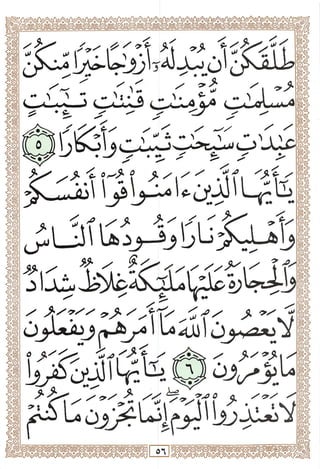 طَلَّقَكُنَّ أَن يُبْدِلَهُۥٓ أَزْوَٰجًا خَيْرًا مِّنكُنَّ
مُسْلِمَٰتٍ مُّؤْمِنَٰتٍ قَٰنِتَٰتٍ تَٰٓئِبَٰتٍ
عَٰبِدَٰتٍ سَٰٓئِحَٰتٍ ثَيِّبَٰتٍ وَأَبْكَارًا ٥
يَٰٓأَيُّهَا ٱلَّذِينَ ءَامَنُوا۟ قُوٓا۟ أَنفُسَكُمْ
وَأَهْلِيكُمْ نَارًا وَقُودُهَا ٱلنَّاسُ
وَٱلْحِجَارَةُ عَلَيْهَا مَلَٰٓئِكَةٌ غِلَاظٌ شِدَادٌ
لَّا يَعْصُونَ ٱللَّهَ مَآ أَمَرَهُمْ وَيَفْعَلُونَ
مَا يُؤْمَرُونَ ٦ يَٰٓأَيُّهَا ٱلَّذِينَ كَفَرُوا۟
لَا تَعْتَذِرُوا۟ ٱلْيَوْمَ ۖ إِنَّمَا تُجْزَوْنَ مَا كُنتُمْ
٥٦